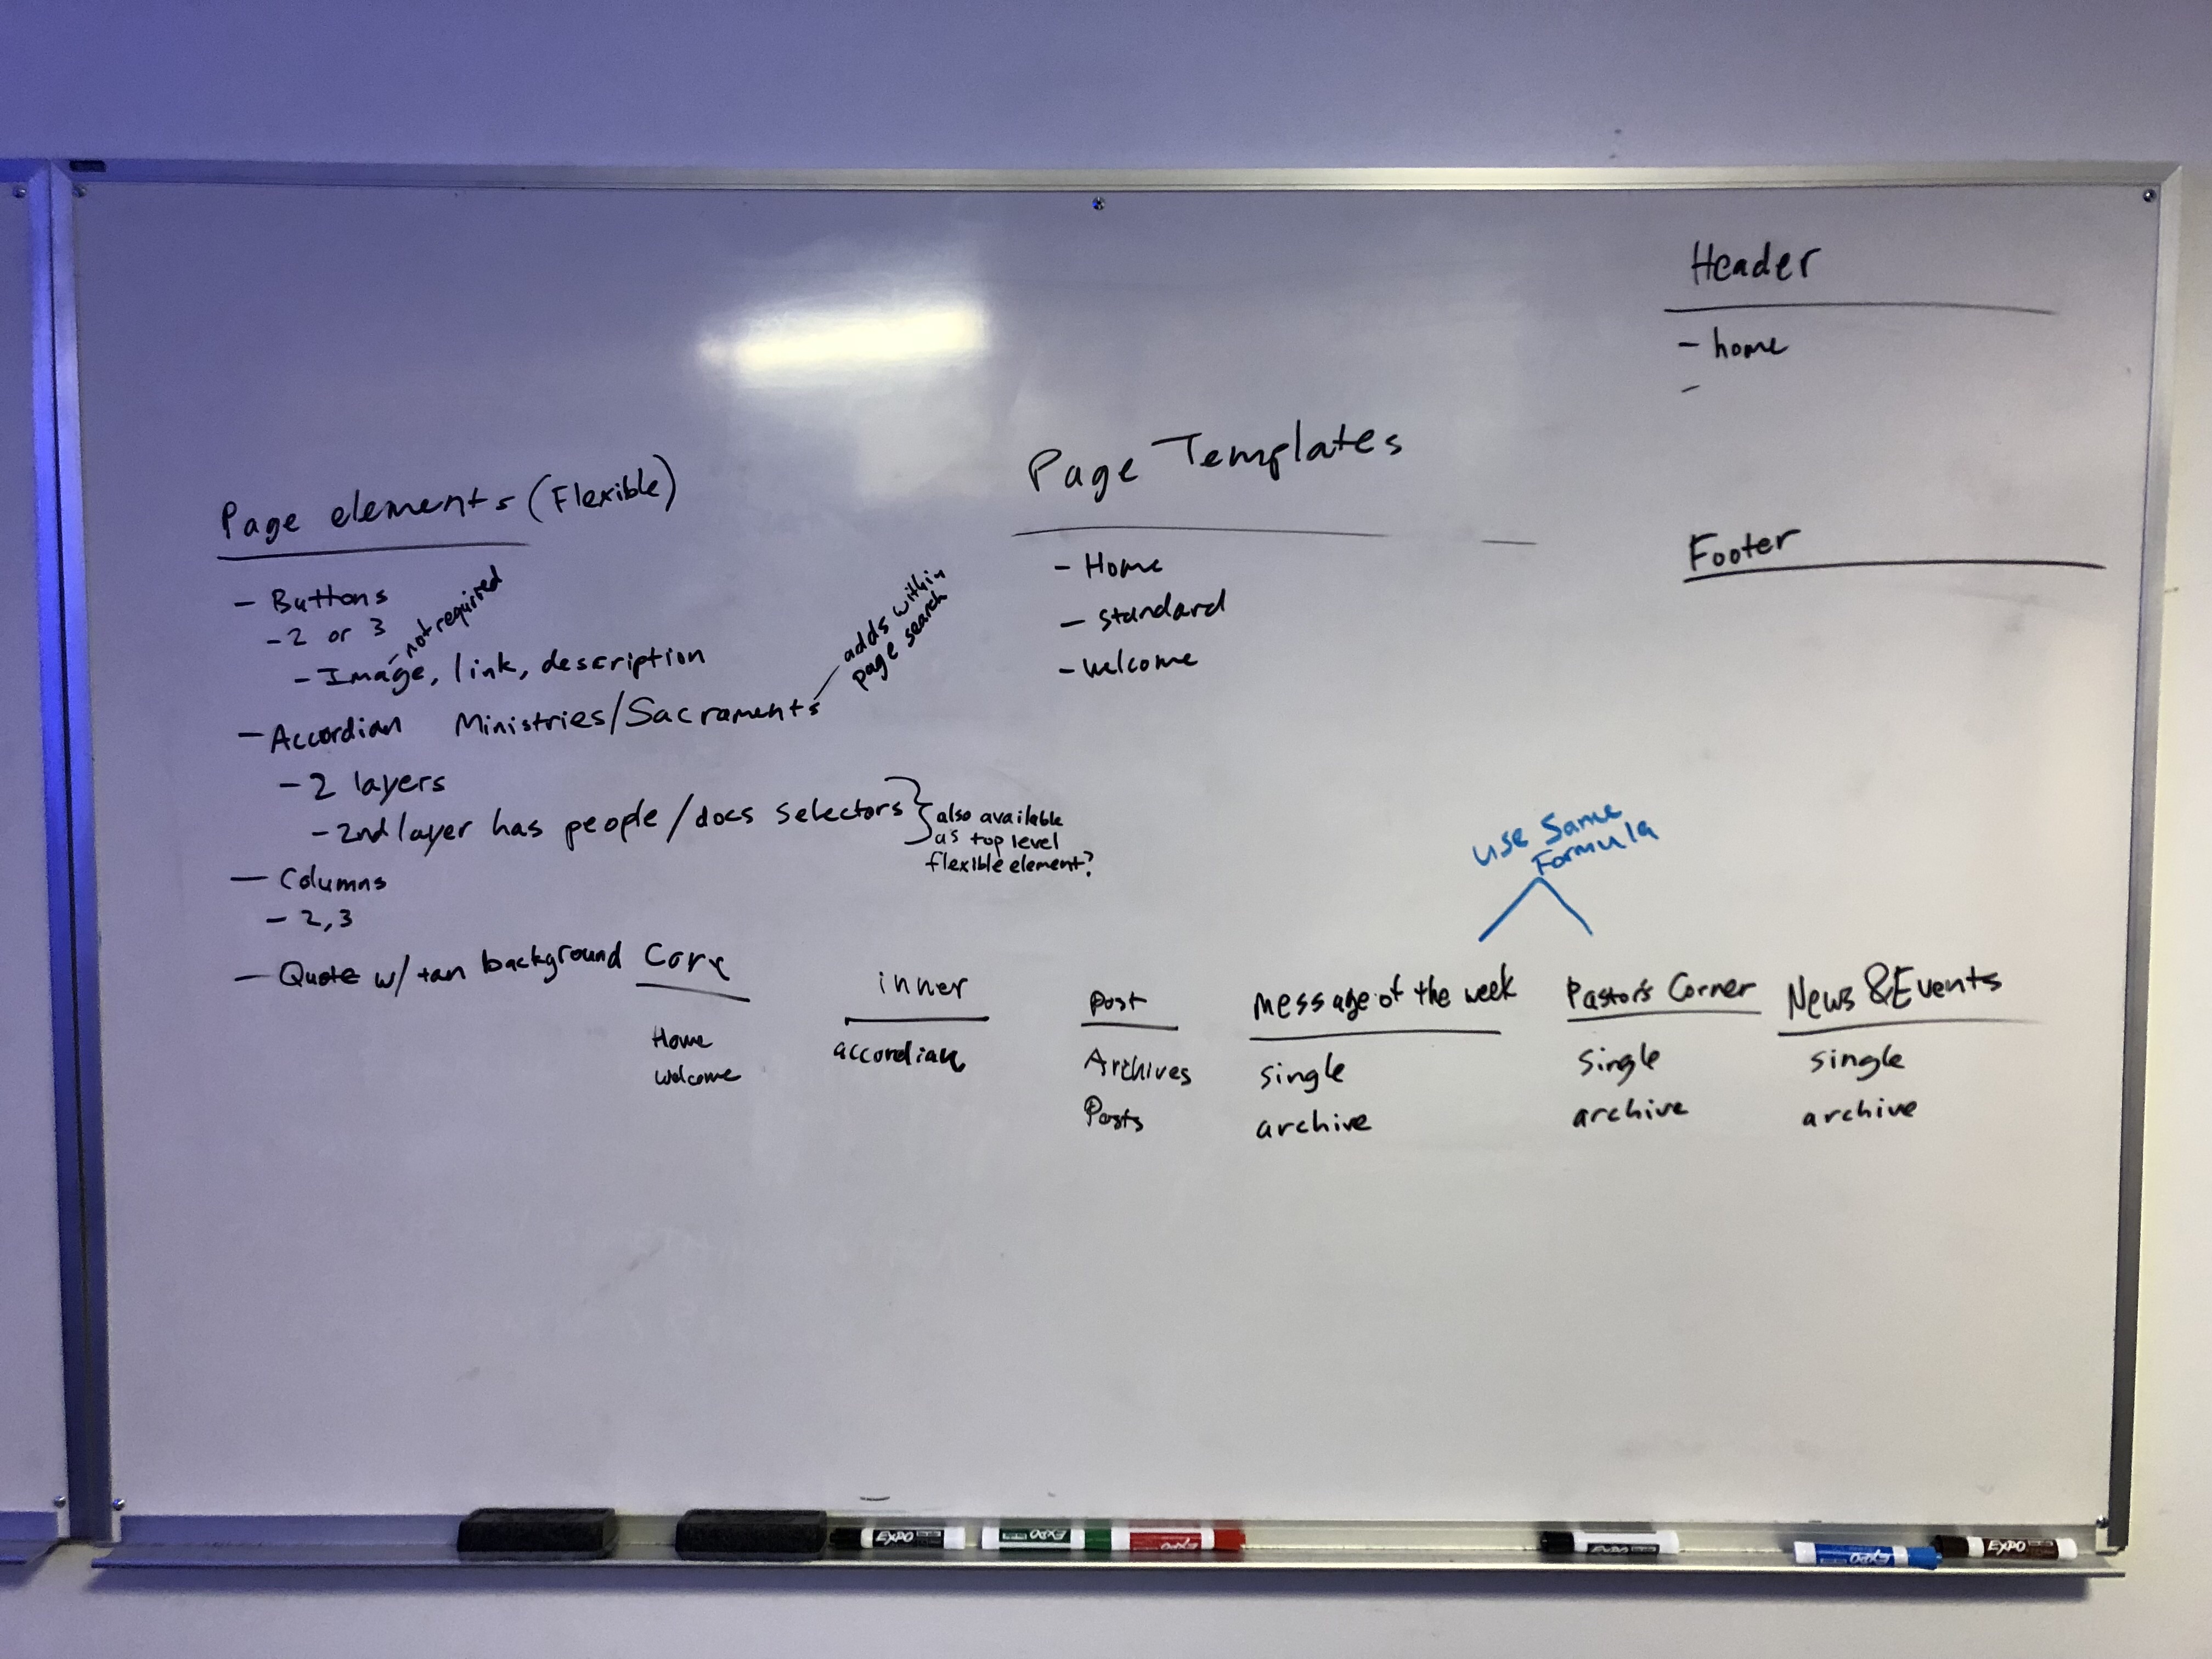 Header
- home
-
Page Templates
- Home
- standard
- welcome
Footer
Page elements (Flexible)
- Buttons
- 2 or 3
- not required
- Image, link, description
- Accordian Ministries/Sacraments
adds within
page search
- 2 layers
- 2nd layer has people/docs selectors
also available
as top level
flexible element?
- Columns
- 2, 3
- Quote w/ tan background
Core
Home
Welcome
inner
accordian
post
Archives
Posts
use Same
Formula
Message of the week
single
archive
Pastor's Corner
Single
archive
News & Events
single
archive
EXPO
EXPO
EXPO
EXPO
EXPO
EXPO